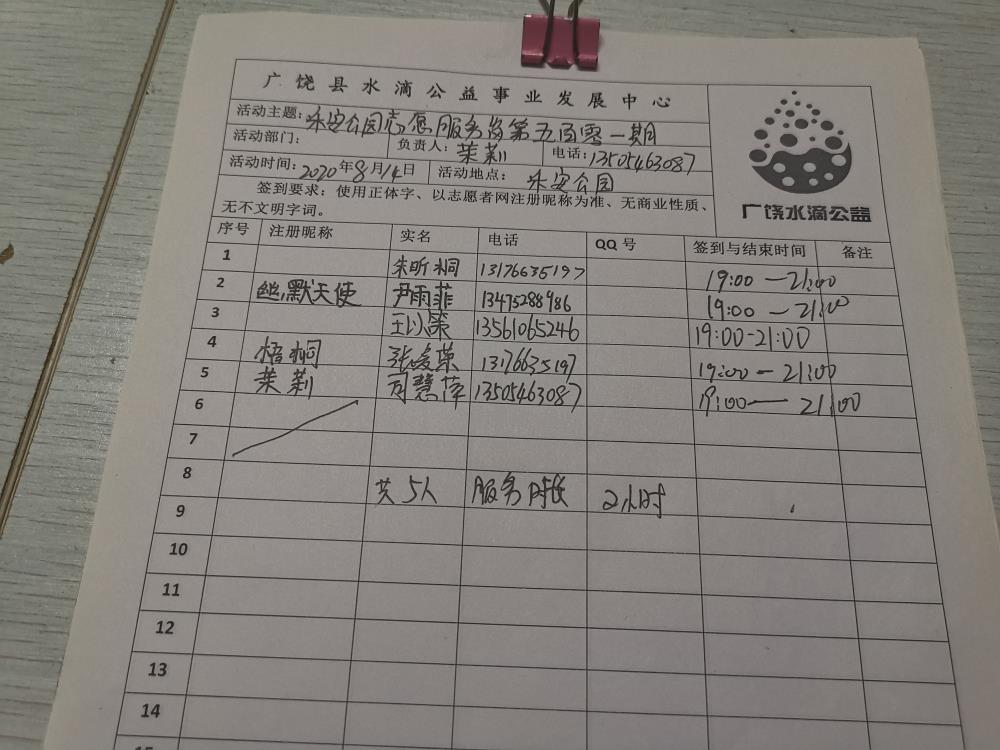 广饶县水滴公益事业发展中心
活动主题：乐安公园志愿服务岗第五百零一期
活动部门： 负责人：茉莉 电话：13505463087
活动时间：2020年8月14日 活动地点：乐安公园
签到要求：使用正体字、以志愿者网注册昵称为准、无商业性质、
无不文明字词。
广饶水滴公益
序号 注册昵称 实名 电话 QQ号 签到与结束时间 备注
1 朱昕桐 13176635197 19:00—21:00
2 幽默天使 尹雨菲 13475288986 19:00—21:00
3 王以 13561065246 19:00-21:00
4 梧桐 张爱荣 13176635197 19:00—21:00
5 茉莉 司慧萍 13505463087 19:00—21:00
6
7
8 共5人 服务时长 2小时
9
10
11
12
13
14
15